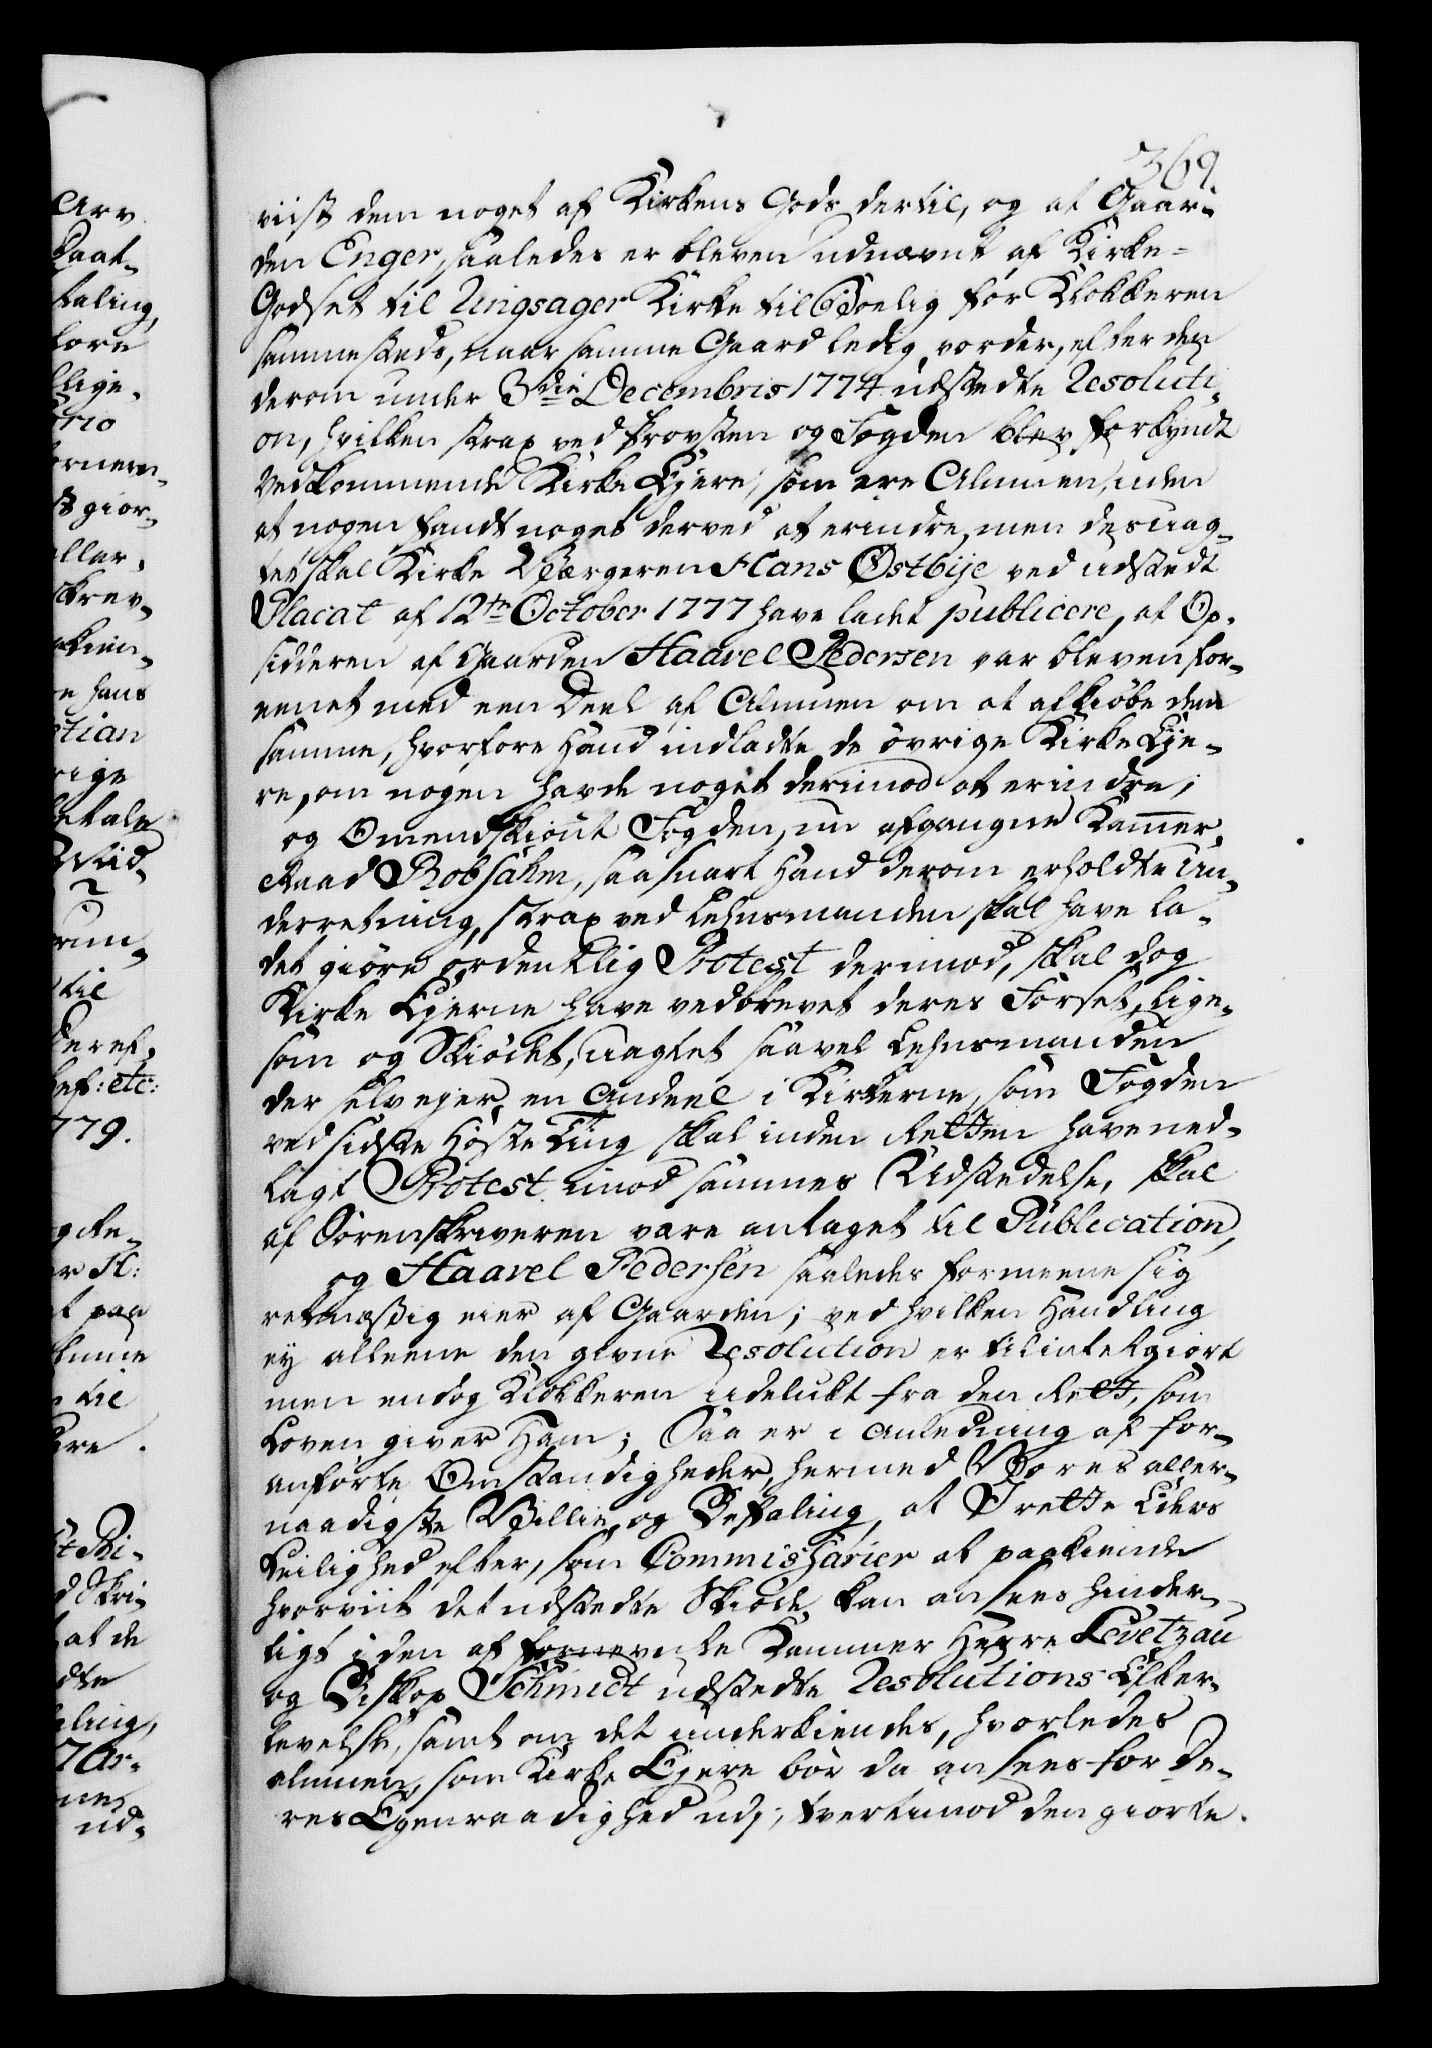 369.
viist dem noget af Kirkens Gods dertil, og at Gaar-
den Enger, saaledes er bleven udnævnt af Kirke-
Godset til Ringsager Kirke til Boelig for Klokkeren
sammesteds, naar samme Gaard ledig vorder, efter den
derom under 3die Decembris 1774 udstedte Resoluti-
on, hvilken strax ved Provsten og Fogden blev forkyndt
Vedkommende Kirke Ejere, som ere Almuen, uden
at nogen fandt noget derved at erindre, men desuag-
tet skal Kirke Værgeren Hans Østbÿe ved udstedt
Placat af 12te October 1777 have ladet publicere, at Op-
sidderen af Gaarden Haavel Pedersen var bleven for-
eenet med een Deel af Almuen om at afkiøbe dem
samme, hvorfore Hand indladte de øvrige Kirke Eje-
re, om nogen havde noget derimod at erindre;
og Omendskiønt Fogden, nu afgangne Kammer,
Raad Robsahm, saasnart Hand derom erholdte Un-
derretning, strax ved Lehnsmanden skal have la-
det giøre ordentlig Protest derimod, skal dog
Kirke Ejerne have vedblevet deres Forset, lige-
som og Skiødet, uagtet saavel Lehnsmanden
der selv ejer en Andeel i Kirkerne, som Fogden
ved sidste Høste Ting skal inden Retten have ned-
lagt Protest imod sammes Udstedelse, skal
af Sorenskriveren være antaget til Publication,
og Haavel Pedersen saaledes formeene sig
retmæssig eier af Gaarden; ved hvilken Handling
ej alleene den givne Resolution er tilintetgiort
men endog Klokkeren udelukt fra den Rett, som
Loven giver Ham; Saa er i Anledning af for-
anførte Omstændigheder, hermed Vores aller-
naadigste Villie og Befaling, at I rette Eders
Leilighed efter, som Commissarier at paakiende
hvorviit det udstedte Skiøde kan ansees hinder-
ligt i den af fornevnte Kammer Herre Levetzau
og Biskop Schmidt udstedte Resolutions Efter-
levelse, samt om det underkiendes, hvorledes
Almuen, som Kirke Ejere bør da ansees for De-
res Egenraadighed udj, tvertimod den giorte